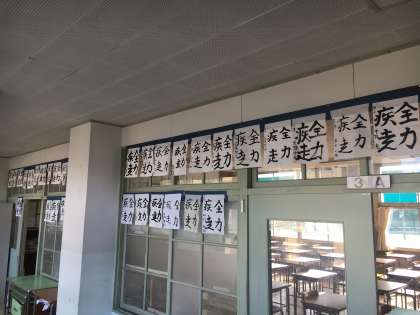 全力
疾走
全力
疾走
全力
疾走
全力
疾走
全力
疾走
全力
疾走
全力
疾走
全力
疾走
全力
疾走
全力
疾走
全力
疾走
3 A
全力
疾走
全力
疾走
全力
疾走
全力
疾走
全力
疾走
全力
疾走